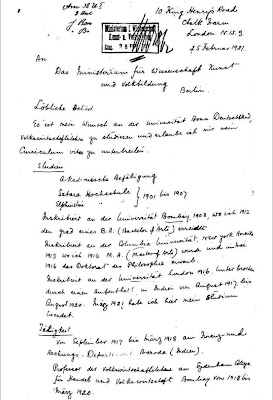 10 King Henry's Road
Chalk Farm
London N.W. 3.
25 Februar 1921.
An
Das Ministerium für Wissenschaft Kunst
und Volksbildung
Berlin.
Löbliche Behörd
Es ist mein Wunsch an der Universität Bonn Deutschland,
Volkswirtschaftslehre zu studieren und erlaube ich mir mein
Curriculum vitae zu unterbreiten.
Studien
Akademische Befähigung
Satara Hochschule
Elphinstone " 1901 bis 1907
Inskribiert an der Universität Bombay 1908, wo ich 1912
den grad eines B.A. (Bachelor of Arts) erreichte
Inskribiert an der Columbia Universität, New York
1913 wo ich 1915 M.A. (Master of Arts) wurde und
1916 das Doktorat der Philosophie erwarb.
Inskribiert an der Universität London 1916. Unterbrochen
durch einen Aufenthalt in Indien von August 1917, bis
August 1920. März 1921 habe ich hier mein Studium
beendet.
Tätigkeit
Von September 1917 bis März 1918 am Finanz und
Rechnungs-Departement Baroda (Indien).
Professor der Volkswirtschaftslehre am Sydenham College
für Handel und Volkswirtschaft Bombay von 1918 bis
März 1920.